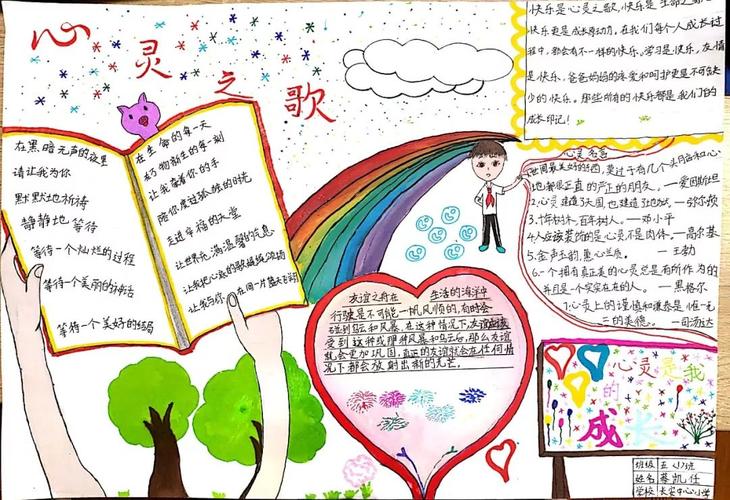 心灵之歌
在黑暗无声的夜里
请让我为你
默默地祈祷
静静地等待
等待一个灿烂的过程
等待一个美丽的神话
等待一个美好的结局
在生命的每一天
让我牵着你的手
陪你度过孤独的时光
走进幸福的天堂
让世界充满温馨的气息
友谊之舟在生活的海洋中
行驶是不可能一帆风顺的,有时会
碰到乌云和风暴,在这种情况下,友谊应该
受到这种或那种风暴和乌云后,那么友谊
就会更加巩固,真正的友谊就会在任何情
况下都会放射出新的光芒。
快乐是心灵之歌,快乐是生命之
快乐更是成长原动力,在我们每个人成长过
程中,都会有不一样的快乐。学习是快乐,友情
是快乐,爸爸妈妈的亲爱和呵护更是不可缺
少的快乐。那些所有的快乐都是我们的
成长印记!
心灵名言
世间最美好的东西,莫过于有几个头脑和心
地都很正直的严正的朋友。—爱因斯坦
3.十年树木,百年树人。—邓小平
4.人应该装饰的是心灵,不是肉体。—高尔基
—王勃
6.一个拥有真正美的心灵总是有所作为的
并且是一个实实在在的人。—黑格尔
7.心灵上的谨慎和谦恭是惟一
—司汤达
心灵是我
的
成长
班级 五(1)班
姓名 蔡凯任
学校 长安中心小学